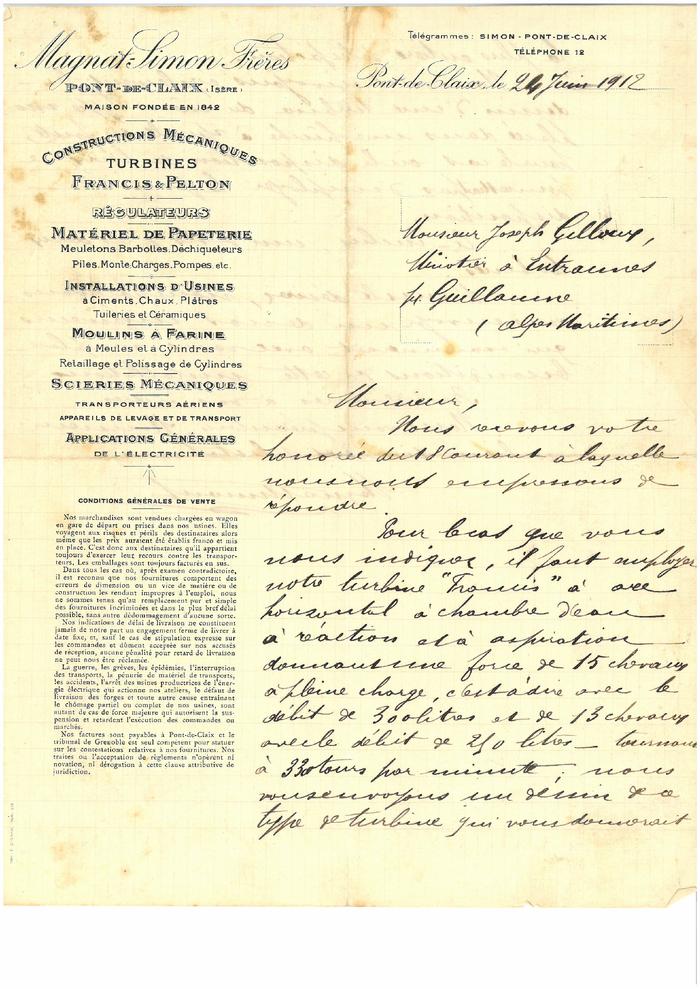 Magnat-Simon Frères
PONT-DE-CLAIX (ISÈRE)
MAISON FONDÉE EN 1842
CONSTRUCTIONS MÉCANIQUES
TURBINES
FRANCIS & PELTON
RÉGULATEURS
MATÉRIEL DE PAPETERIE
Meuletons.Barbottes.Déchiqueteurs
Piles.Monte-Charges.Pompes.etc.
INSTALLATIONS D'USINES
à Ciments.Chaux.Plâtres
Tuileries et Céramiques
MOULINS À FARINE
à Meules et à Cylindres
Retaillage et Polissage de Cylindres
SCIERIES MÉCANIQUES
TRANSPORTEURS AÉRIENS
APPAREILS DE LEVAGE ET DE TRANSPORT
APPLICATIONS GÉNÉRALES
DE L'ÉLECTRICITÉ
CONDITIONS GÉNÉRALES DE VENTE
Nos marchandises sont vendues chargées en wagon
en gare de départ ou prises dans nos usines. Elles
voyagent aux risques et périls des destinataires alors
même que les prix auraient été établis franco et mis
en place. C'est donc aux destinataires qu'il appartient
toujours d'exercer leur recours contre les transpor-
teurs. Les emballages sont toujours facturés en sus.
Dans tous les cas où, après examen contradictoire,
il est reconnu que nos fournitures comportent des
erreurs de dimension ou un vice de matière ou de
construction les rendant impropres à l'emploi, nous
ne sommes tenus qu'au remplacement pur et simple
des fournitures incriminées et dans le plus bref délai
possible, sans autre dédommagement d'aucune sorte.
Nos indications de délai de livraison ne constituent
jamais de notre part un engagement ferme de livrer à
date fixe, et, sauf le cas de stipulation expresse sur
les commandes et dûment acceptée sur nos accusés
de réception, aucune pénalité pour retard de livraison
ne peut nous être réclamée.
La guerre, les grèves, les épidémies, l'interruption
des transports, la pénurie de matériel de transports,
les accidents, l'arrêt des usines productrices de l'éner-
gie électrique qui actionne nos ateliers, le défaut de
livraison des forges et toute autre cause entraînant
le chômage partiel ou complet de nos usines, sont
autant de cas de force majeure qui autorisent la sus-
pension et retardent l'exécution des commandes ou
marchés.
Nos factures sont payables à Pont-de-Claix et le
tribunal de Grenoble est seul compétent pour statuer
sur les contestations relatives à nos fournitures. Nos
traites ou l'acceptation de règlements n'opèrent ni
novation, ni dérogation à cette clause attributive de
juridiction.
Télégrammes: SIMON - PONT-DE-CLAIX
TÉLÉPHONE 12
Pont-de-Claix, le 24 Juin 1912
Monsieur Joseph Gilloux,
Minotier à Entraunes
pr Guillaume
(Alpes Maritimes)
Monsieur,
Nous recevons votre
honorée du 18 courant à laquelle
nous nous empressons de
répondre.
Pour le cas que vous
nous indiquez, il faut employer
notre turbine "Francis" à axe
horizontal à chambre d'eau
à réaction et à aspiration
donnant une force de 15 chevaux
à pleine charge, c'est à dire avec le
débit de 300 litres et de 13 chevaux
avec le débit de 250 litres tournant
à 330 tours par minute; nous
vous envoyons un dessin de ce
type de turbine qui vous donnerait